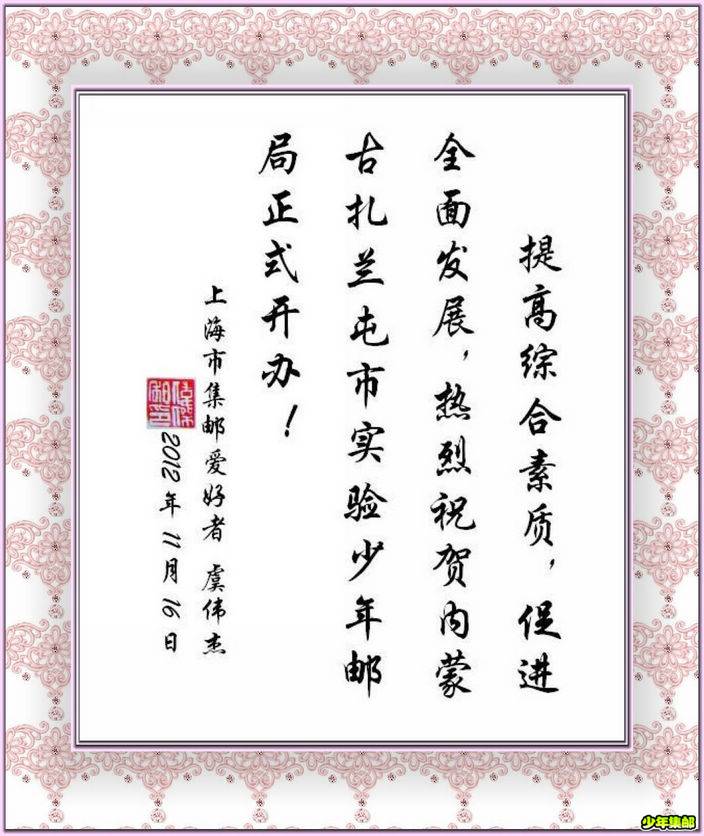 提高综合素质，促进
全面发展，热烈祝贺内蒙
古扎兰屯市实验少年邮
局正式开办！
上海市集邮爱好者 虞伟杰
2012年11月16日
少年集邮